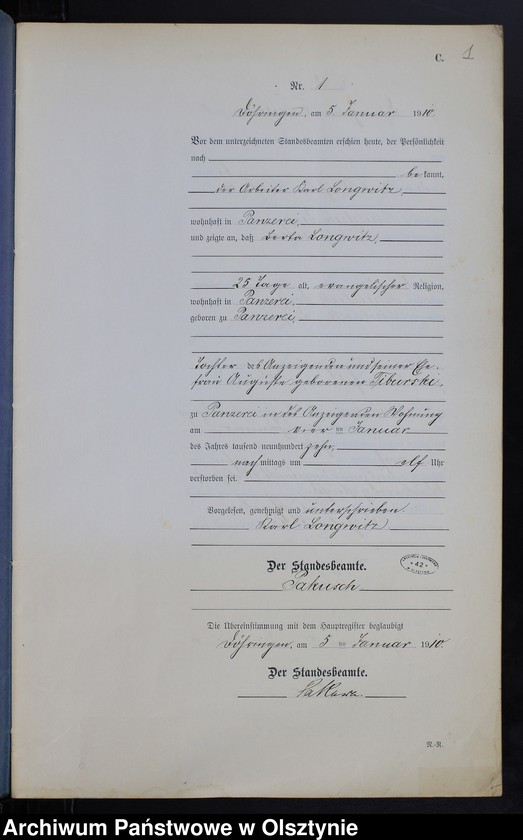 C. 1
Nr. 1
Döhringen, am 5 Januar 1910.
Vor dem unterzeichneten Standesbeamten erschien heute, der Persönlichkeit
nach
be kannt,
der Arbeiter Karl Longwitz,
wohnhaft in Panzerei,
und zeigte an, daß Berta Longwitz,
25 Tage alt, evangelischer Religion,
wohnhaft in Panzerei,
geboren zu Panzerei,
Tochter des Anzeigenden und seiner Ehe-
frau Auguste geborenen Tiburski,
zu Panzerei in des Anzeigenden Wohnung
am vier ten Januar
des Jahres tausend neunhundert zehn,
nach mittags um elf Uhr
verstorben sei.
Vorgelesen, genehmigt und unterschrieben
Karl Longwitz
Der Standesbeamte.
42
Die Übereinstimmung mit dem Hauptregister beglaubigt
Döhringen, am 5 ten Januar 1910.
Der Standesbeamte.
N.-R.
Archiwum Państwowe w Olsztynie